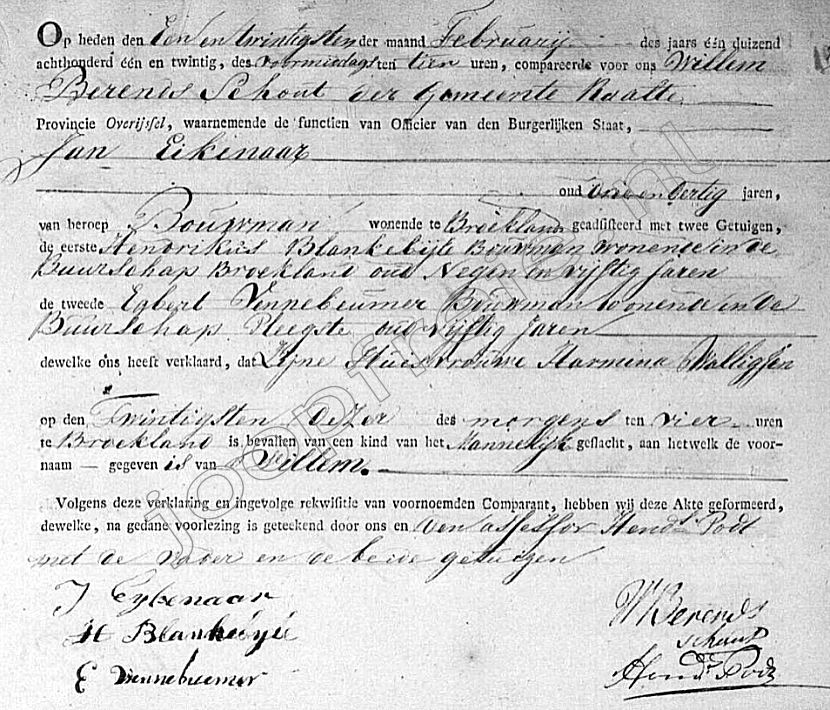 Op heden den Een en twintigsten der maand Februarij des jaars één duizend
achthonderd één en twintig, des voormiddags ten tien uren, compareerde voor ons Willem
Berends Schout der Gemeente Raalte
Provincie Overijssel, waarnemende de functien van Officier van den Burgerlijken Staat,
Jan Eikinaar
oud en dertig jaren,
van beroep Bouwman wonende te Broekland geadsisteerd met twee Getuigen,
de eerste Hendrikus Blankebijte Bouwman wonende in de
Buurschap Broekland oud Negen en vijftig Jaren
de tweede Egbert Vennebeumer Bouwman wonende in de
Buurschap Pleegste oud vijftig Jaren
dewelke ons heeft verklaard, dat Zijne Huisvrouwe Harmina
op den Twintigsten dezer des morgens ten vier uren
te Broekland is bevallen van een kind van het Mannelijk geslacht, aan hetwelk de voor-
naam — gegeven is van Willem.
Volgens deze verklaring en ingevolge rekwisitie van voornoemden Comparant, hebben wij deze Akte geformeerd,
dewelke, na gedane voorlezing is geteekend door ons en den assessor Hendk Podt
met de vader en de beide getuigen
J Eybenaar
H Blankebijte
E Vennebuemer
WBerends
schout
Hendk Podt
joopfransen.nl